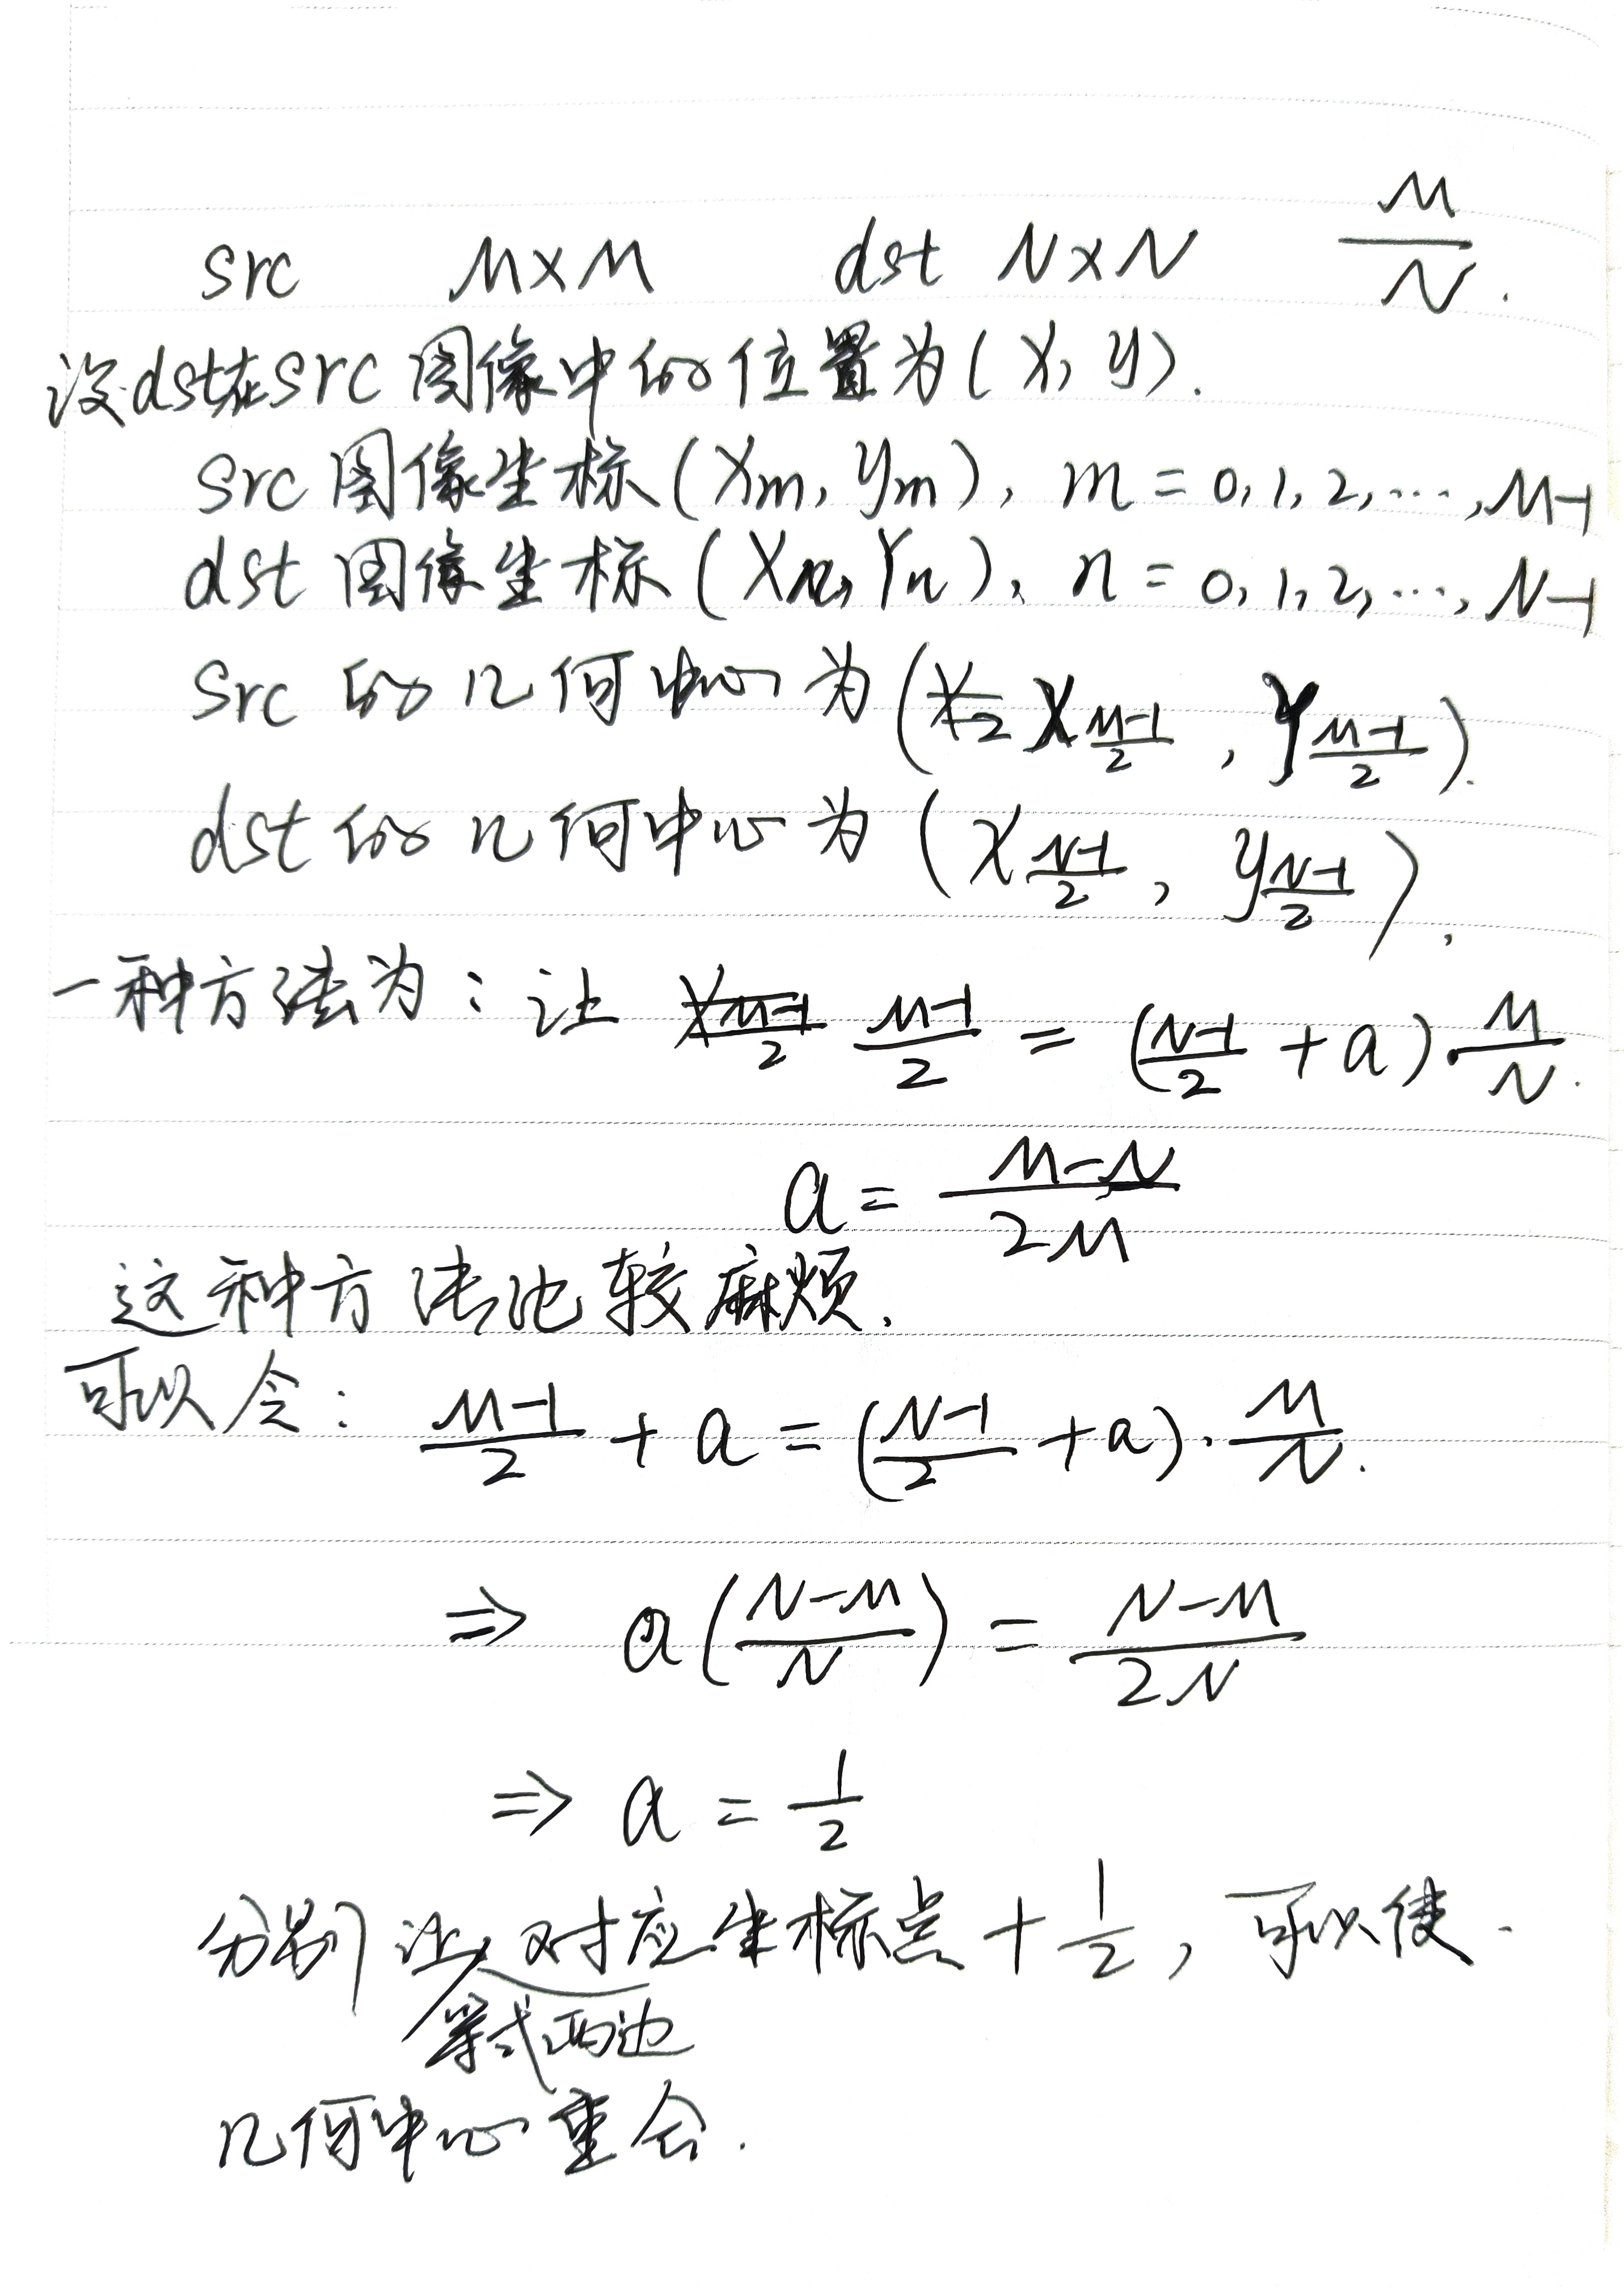 src M×M dst N×N M/N.
设dst在src图像中的位置为(x, y).
src图像坐标(Xm, ym), m = 0, 1, 2, ..., M-1
dst图像坐标(Xn, Yn), n = 0, 1, 2, ..., N-1
src的几何中心为(X(M-1)/2, y(M-1)/2).
dst的几何中心为(x(N-1)/2, y(N-1)/2).
一种方法为：让 (M-1)/2 = ((N-1)/2 + a)·M/N.
a = (M-N)/2M
这种方法比较麻烦.
可以令： (M-1)/2 + a = ((N-1)/2 + a)·M/N.
⇒ a((N-M)/N) = (N-M)/2N
⇒ a = 1/2
分别让等式两边对应坐标点 + 1/2, 可以使
几何中心重合.